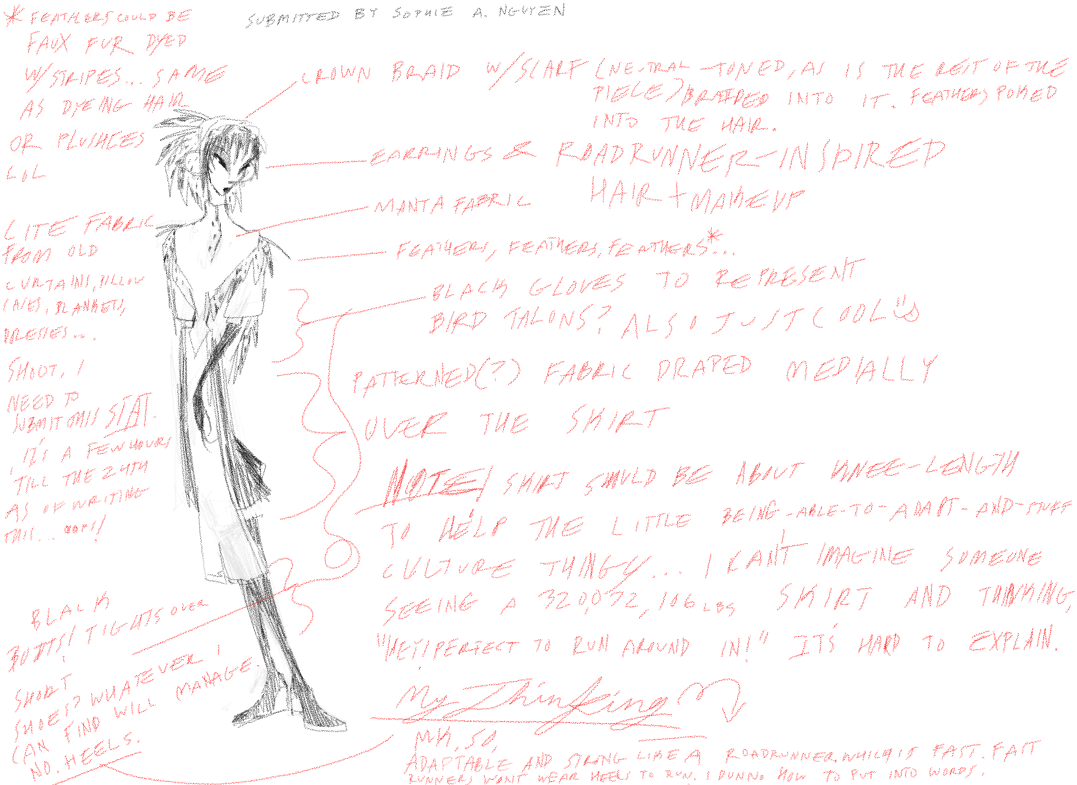 * FEATHERS COULD BE
FAUX FUR DYED
W/STRIPES... SAME
AS DYEING HAIR
OR PLUSHIES
LOL
SUBMITTED BY SOPHIE A. NGUYEN
CROWN BRAID W/SCARF (NEUTRAL-TONED, AS IS THE REST OF THE
PIECE) BRAIDED INTO IT. FEATHERS POKED
INTO THE HAIR.
EARRINGS & ROADRUNNER-INSPIRED
HAIR + MAKEUP
MANTA FABRIC
FEATHERS, FEATHERS, FEATHERS*...
BLACK GLOVES TO REPRESENT
BIRD TALONS? ALSO JUST COOL
LITE FABRIC
FROM OLD
CURTAINS, PILLOW
CASES, BLANKETS,
DRESSES...
SHOOT, I
NEED TO
SUBMIT THIS STAT.
IT'S A FEW HOURS
TILL THE 24TH
AS OF WRITING
THIS... OOPS!
PATTERNED(?) FABRIC DRAPED MEDIALLY
OVER THE SKIRT
NOTE! SKIRT SHOULD BE ABOUT KNEE-LENGTH
TO HELP THE LITTLE BEING-ABLE-TO-ADAPT-AND-STUFF
CULTURE THINGY... I CAN'T IMAGINE SOMEONE
SEEING A 320,032,106 LBS SKIRT AND THINKING,
"HEY! PERFECT TO RUN AROUND IN!" IT'S HARD TO EXPLAIN.
BLACK
BOOTS/TIGHTS OVER
SHORT
SHOES? WHATEVER I
CAN FIND WILL MANAGE.
NO. HEELS.
My Thinking
MK, SO,
ADAPTABLE AND STRONG LIKE A ROADRUNNER, WHICH IS FAST. FAST
RUNNERS WONT WEAR HEELS TO RUN. I DUNNO HOW TO PUT INTO WORDS.